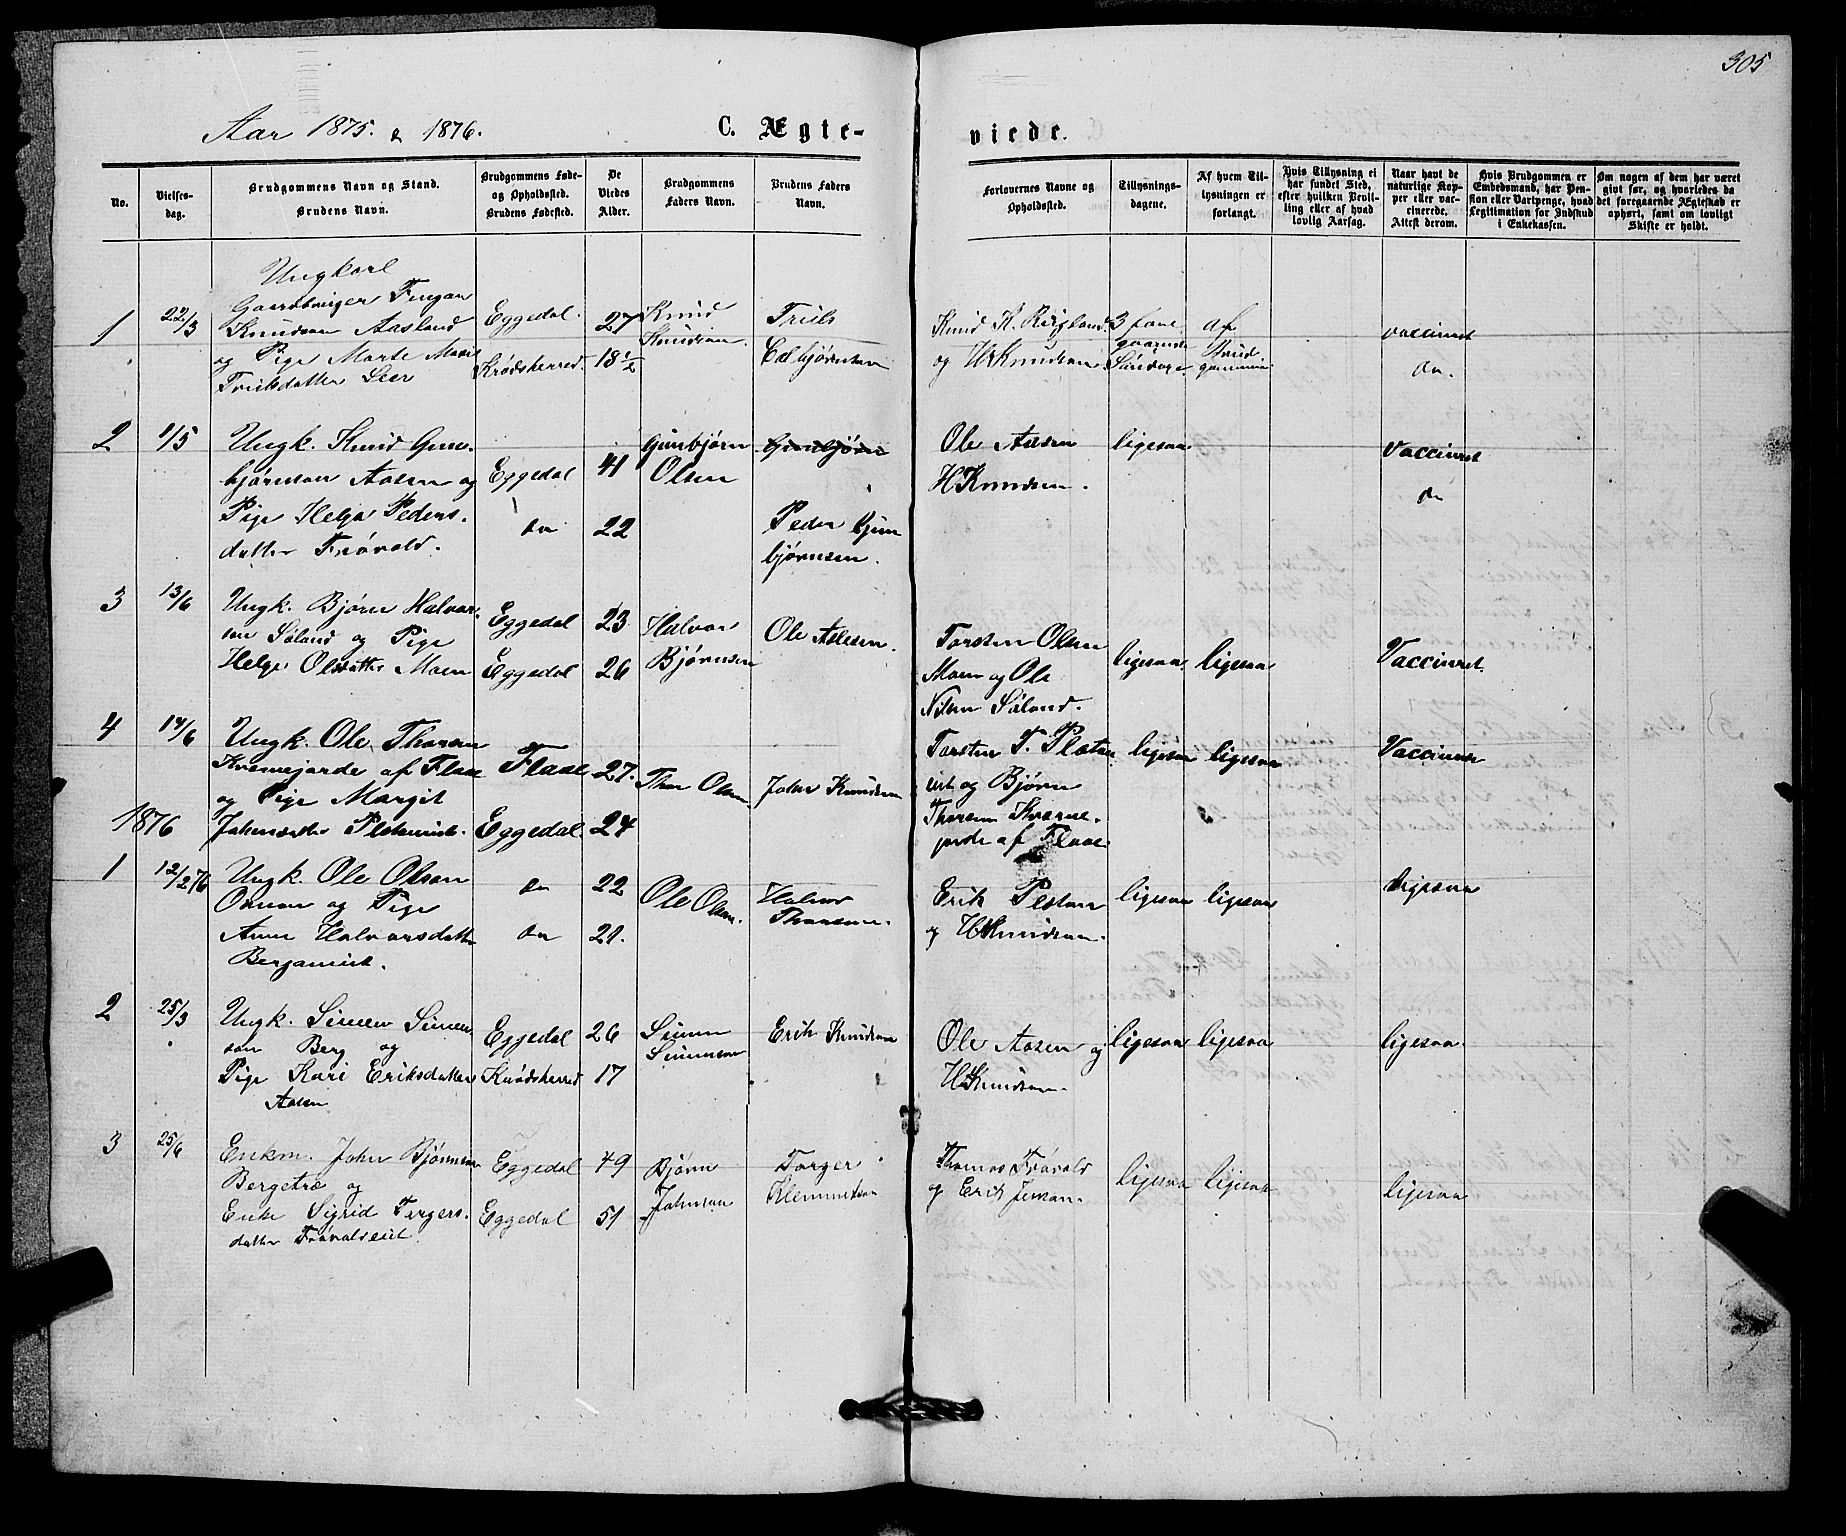 305
Aar 1875. & 1876. C. Ægte- viede.
No.
Vielses-
dag.
Brudgommens Navn og Stand.
Brudens Navn.
Brudgommens Føde-
og Opholdsted.
Brudens Fødested.
De
Viedes
Alder.
Brudgommens
Faders Navn.
Brudens Faders
Navn.
Forlovernes Navne og
Opholdsted.
Tillysnings-
dagene.
Af hvem Til-
lysningen er
forlangt.
Hvis Tillysning ei
har fundet Sted,
efter hvilken Bevil-
ling eller af hvad
lovlig Aarsag.
Naar havt de
naturlige Kop-
per eller vac-
cinerede.
Attest derom.
Hvis Brudgommen er
Embedsmand, har Pen-
sion eller Vartpenge, hvad
Legitimation for Indskud
i Enkekassen.
Om nogen af dem har været
givt før, og hvorledes da
det foregaaende Ægteskab er
ophørt, samt om lovligt
Skifte er holdt.
1
22/3
Ungkarl
Gaardbruger
Knudson Aasland
og Pige Marte
Trulsdatter
Eggedal.
Krødsherred.
27
18 1/2
Knud
Knudson
Truls
Knud K.
og H Knudsen.
3
Søndage.
af
Brud
gommen
vaccineret
do.
2
1/5
Ungk. Knud Gun-
bjørnson Aasen og
Pige Helga Peders-
datter Frøvold.
Eggedal
do
41
22
Gunbjørn
Olsen
Gunbjørn
Peder Gun
bjørnsen.
Ole Aasen
H Knudsen.
ligesaa
Vaccineret
do
3
13/6
Ungk. Bjørn Halvor-
son Søland og Pige
Helge Olsdatter Moen
Eggedal
Eggedal
23
26
Halvor
Bjørnsen
Ole Aslesen.
Torsten Olsen
Moen og Ole
Nilsen Søland.
ligesaa.
ligesaa
Vaccineret
4
14/6
Ungk. Ole Thorsen
af Flaa
og Pige Margit
Johnsdatter
Flaa
Eggedal
27.
24
Thor Olsen.
John Knudsen
Torsten T.
og Bjørn
Thorsen
af Flaa
ligesaa
ligesaa
Vaccineret
1876
1
12/2 76
Ungk. Ole Olson
og Pige
Anne Halvorsdatter
do
do
22
21.
Ole Olsen.
Halvor
Thorsen.
Erik
og H Knudsen.
ligesaa
ligesaa
ligesaa
2
25/3
Ungk. Simen Simen
son Berg og
Pige Kari Eriksdatter
Aasen
Eggedal
Krødsherred
26
17
Simen
Simenson
Erik Knudsen
Ole Aasen og
H Knudsen.
ligesaa
ligesaa
ligesaa.
3
25/6
Enkm. John Bjørnsen
Bergetræ og
Enke Sigrid Torgers-
datter
Eggedal
Eggedal
49
51
Bjørn
Johnson
Torger
Klemmetsen
Thomas Frøvold
og Erik Jenson.
ligesaa
ligesaa
ligesaa